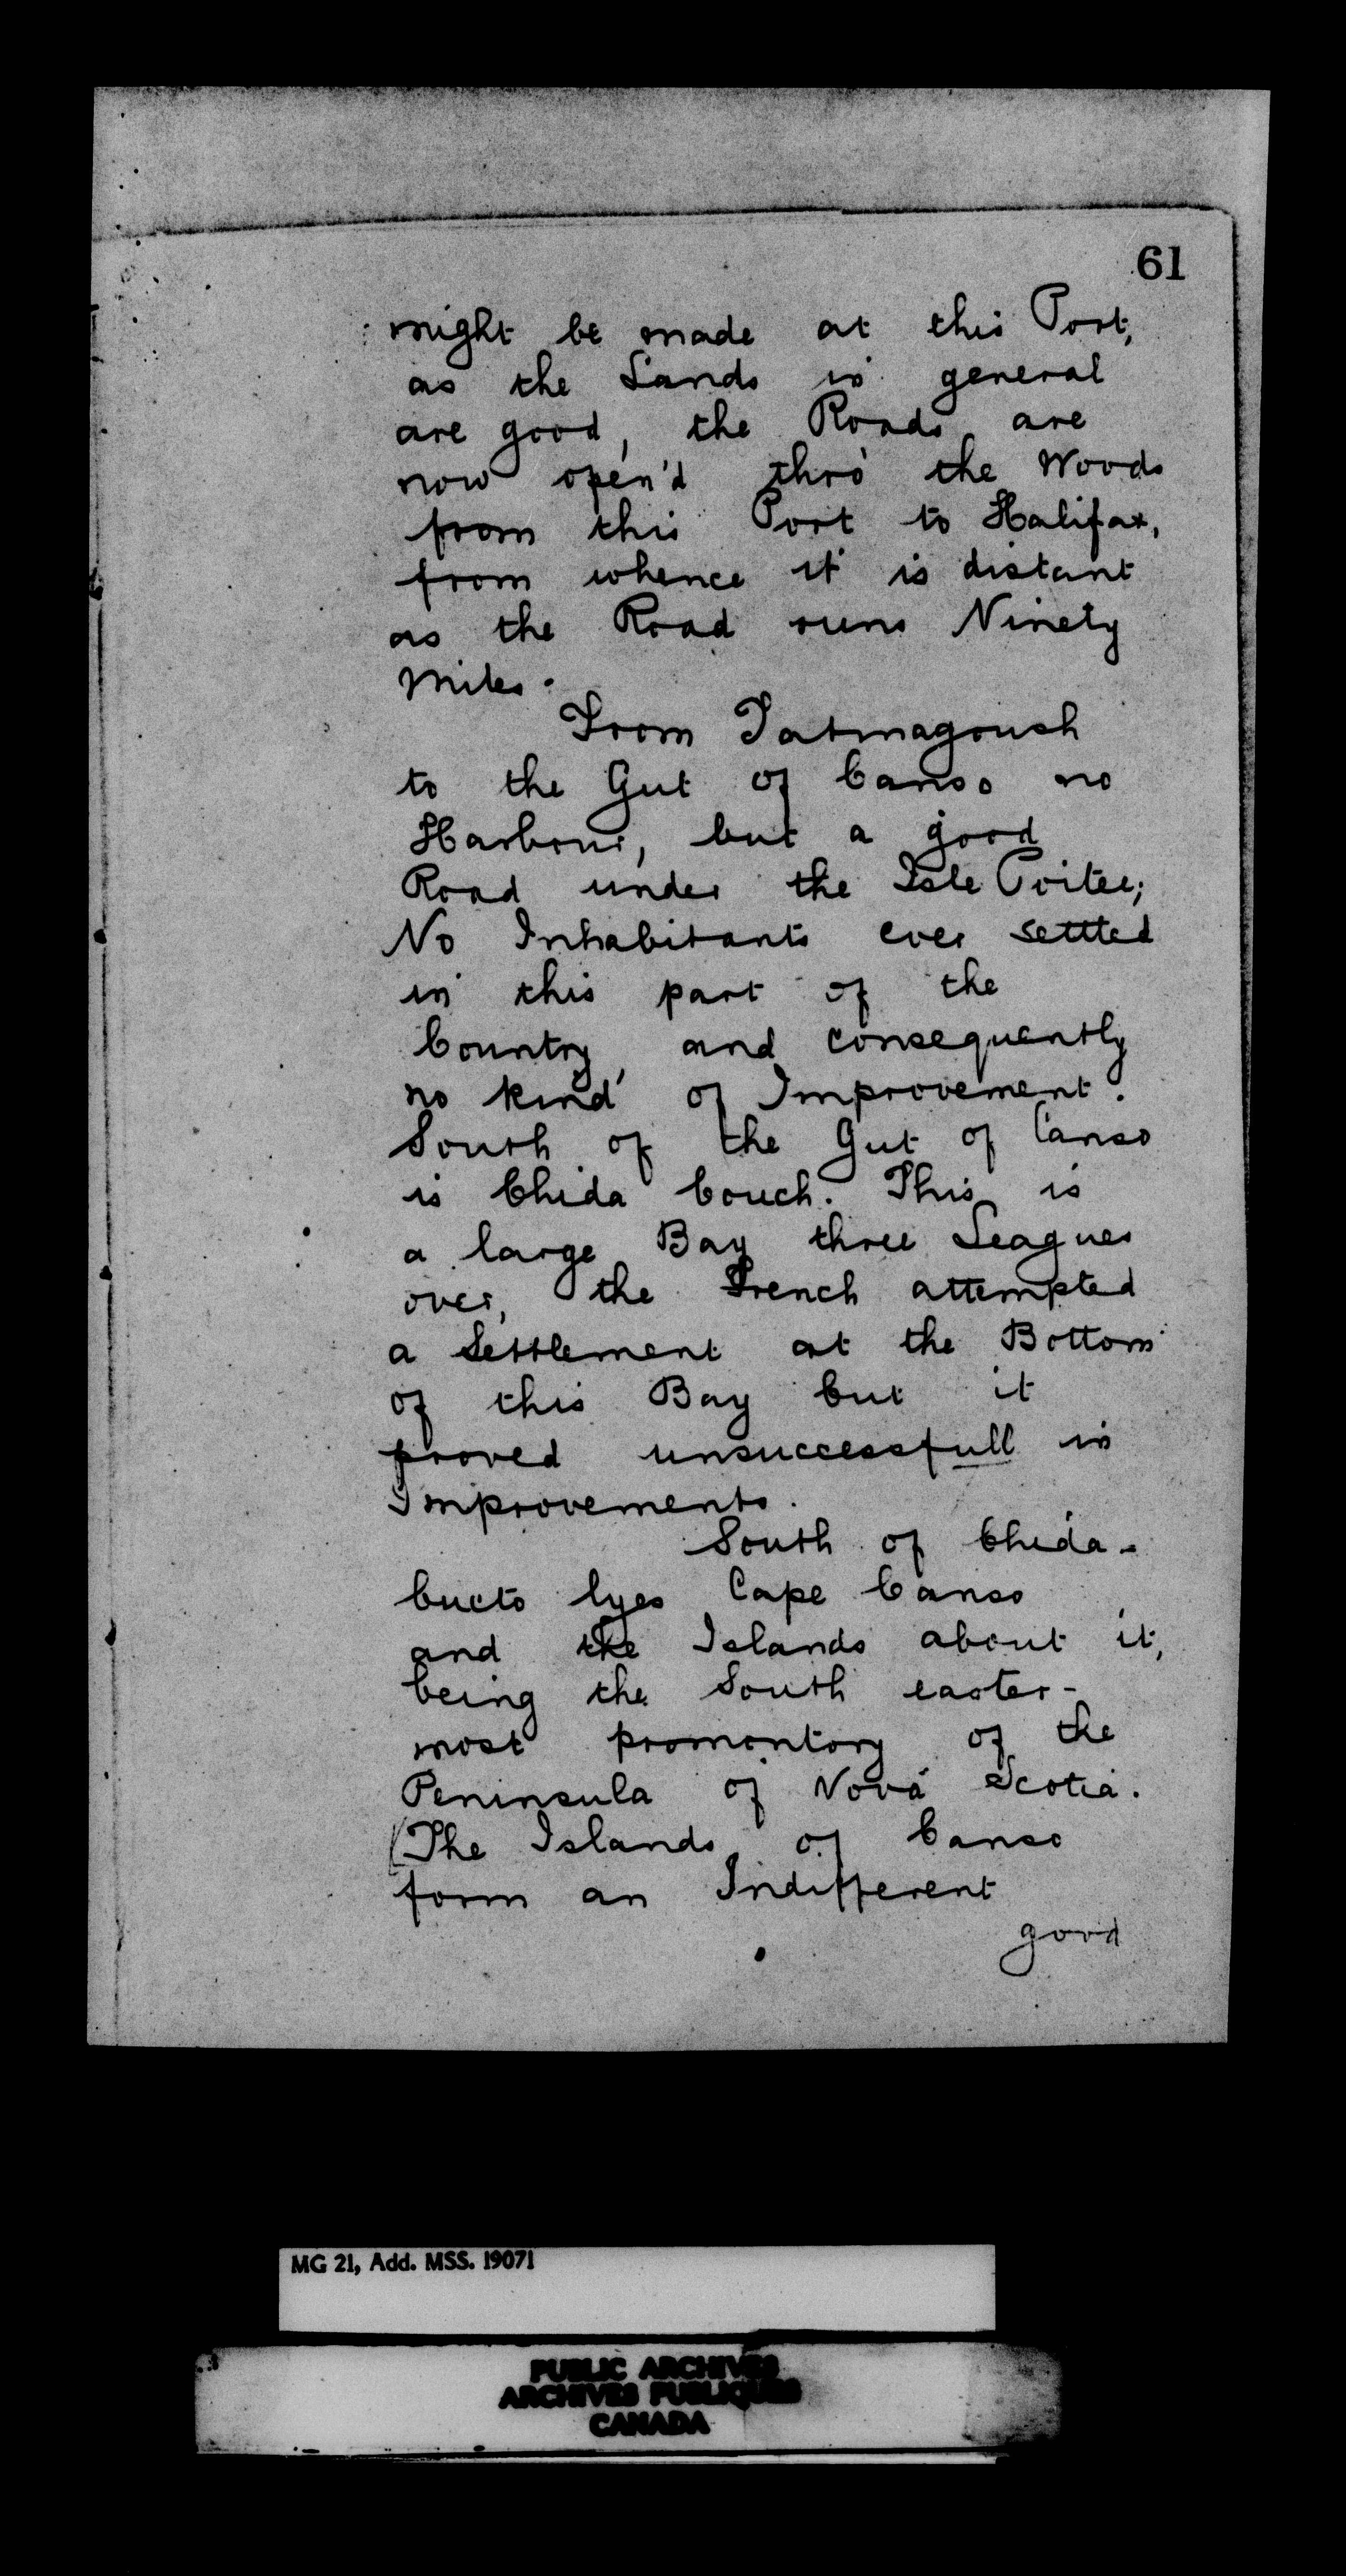 61
might be made at this Port,
as the Lands in general
are good, the Roads are
now open'd thro' the Woods
from this Port to Halifax,
from whence it is distant
as the Road runs Ninety
Miles.
From Tatmagouch
to the Gut of Canso no
Harbour, but a good
Road under the Isle Poitee;
No Inhabitants ever settled
in this part of the
Country, and consequently
no kind of Improvement.
South of the Gut of Canso
is Chida Couch. This is
a large Bay three Leagues
over, the French attempted
a Settlement at the Bottom
of this Bay but it
proved unsuccessfull in
Improvements.
South of Chida-
bucto lyes Cape Canso
and the Islands about it,
being the South easter-
most promontory of the
Peninsula of Nova Scotia.
(The Islands of Canso
form an Indifferent
good
MG 21, Add. MSS. 19071
PUBLIC ARCHIVES
ARCHIVES PUBLIQUES
CANADA